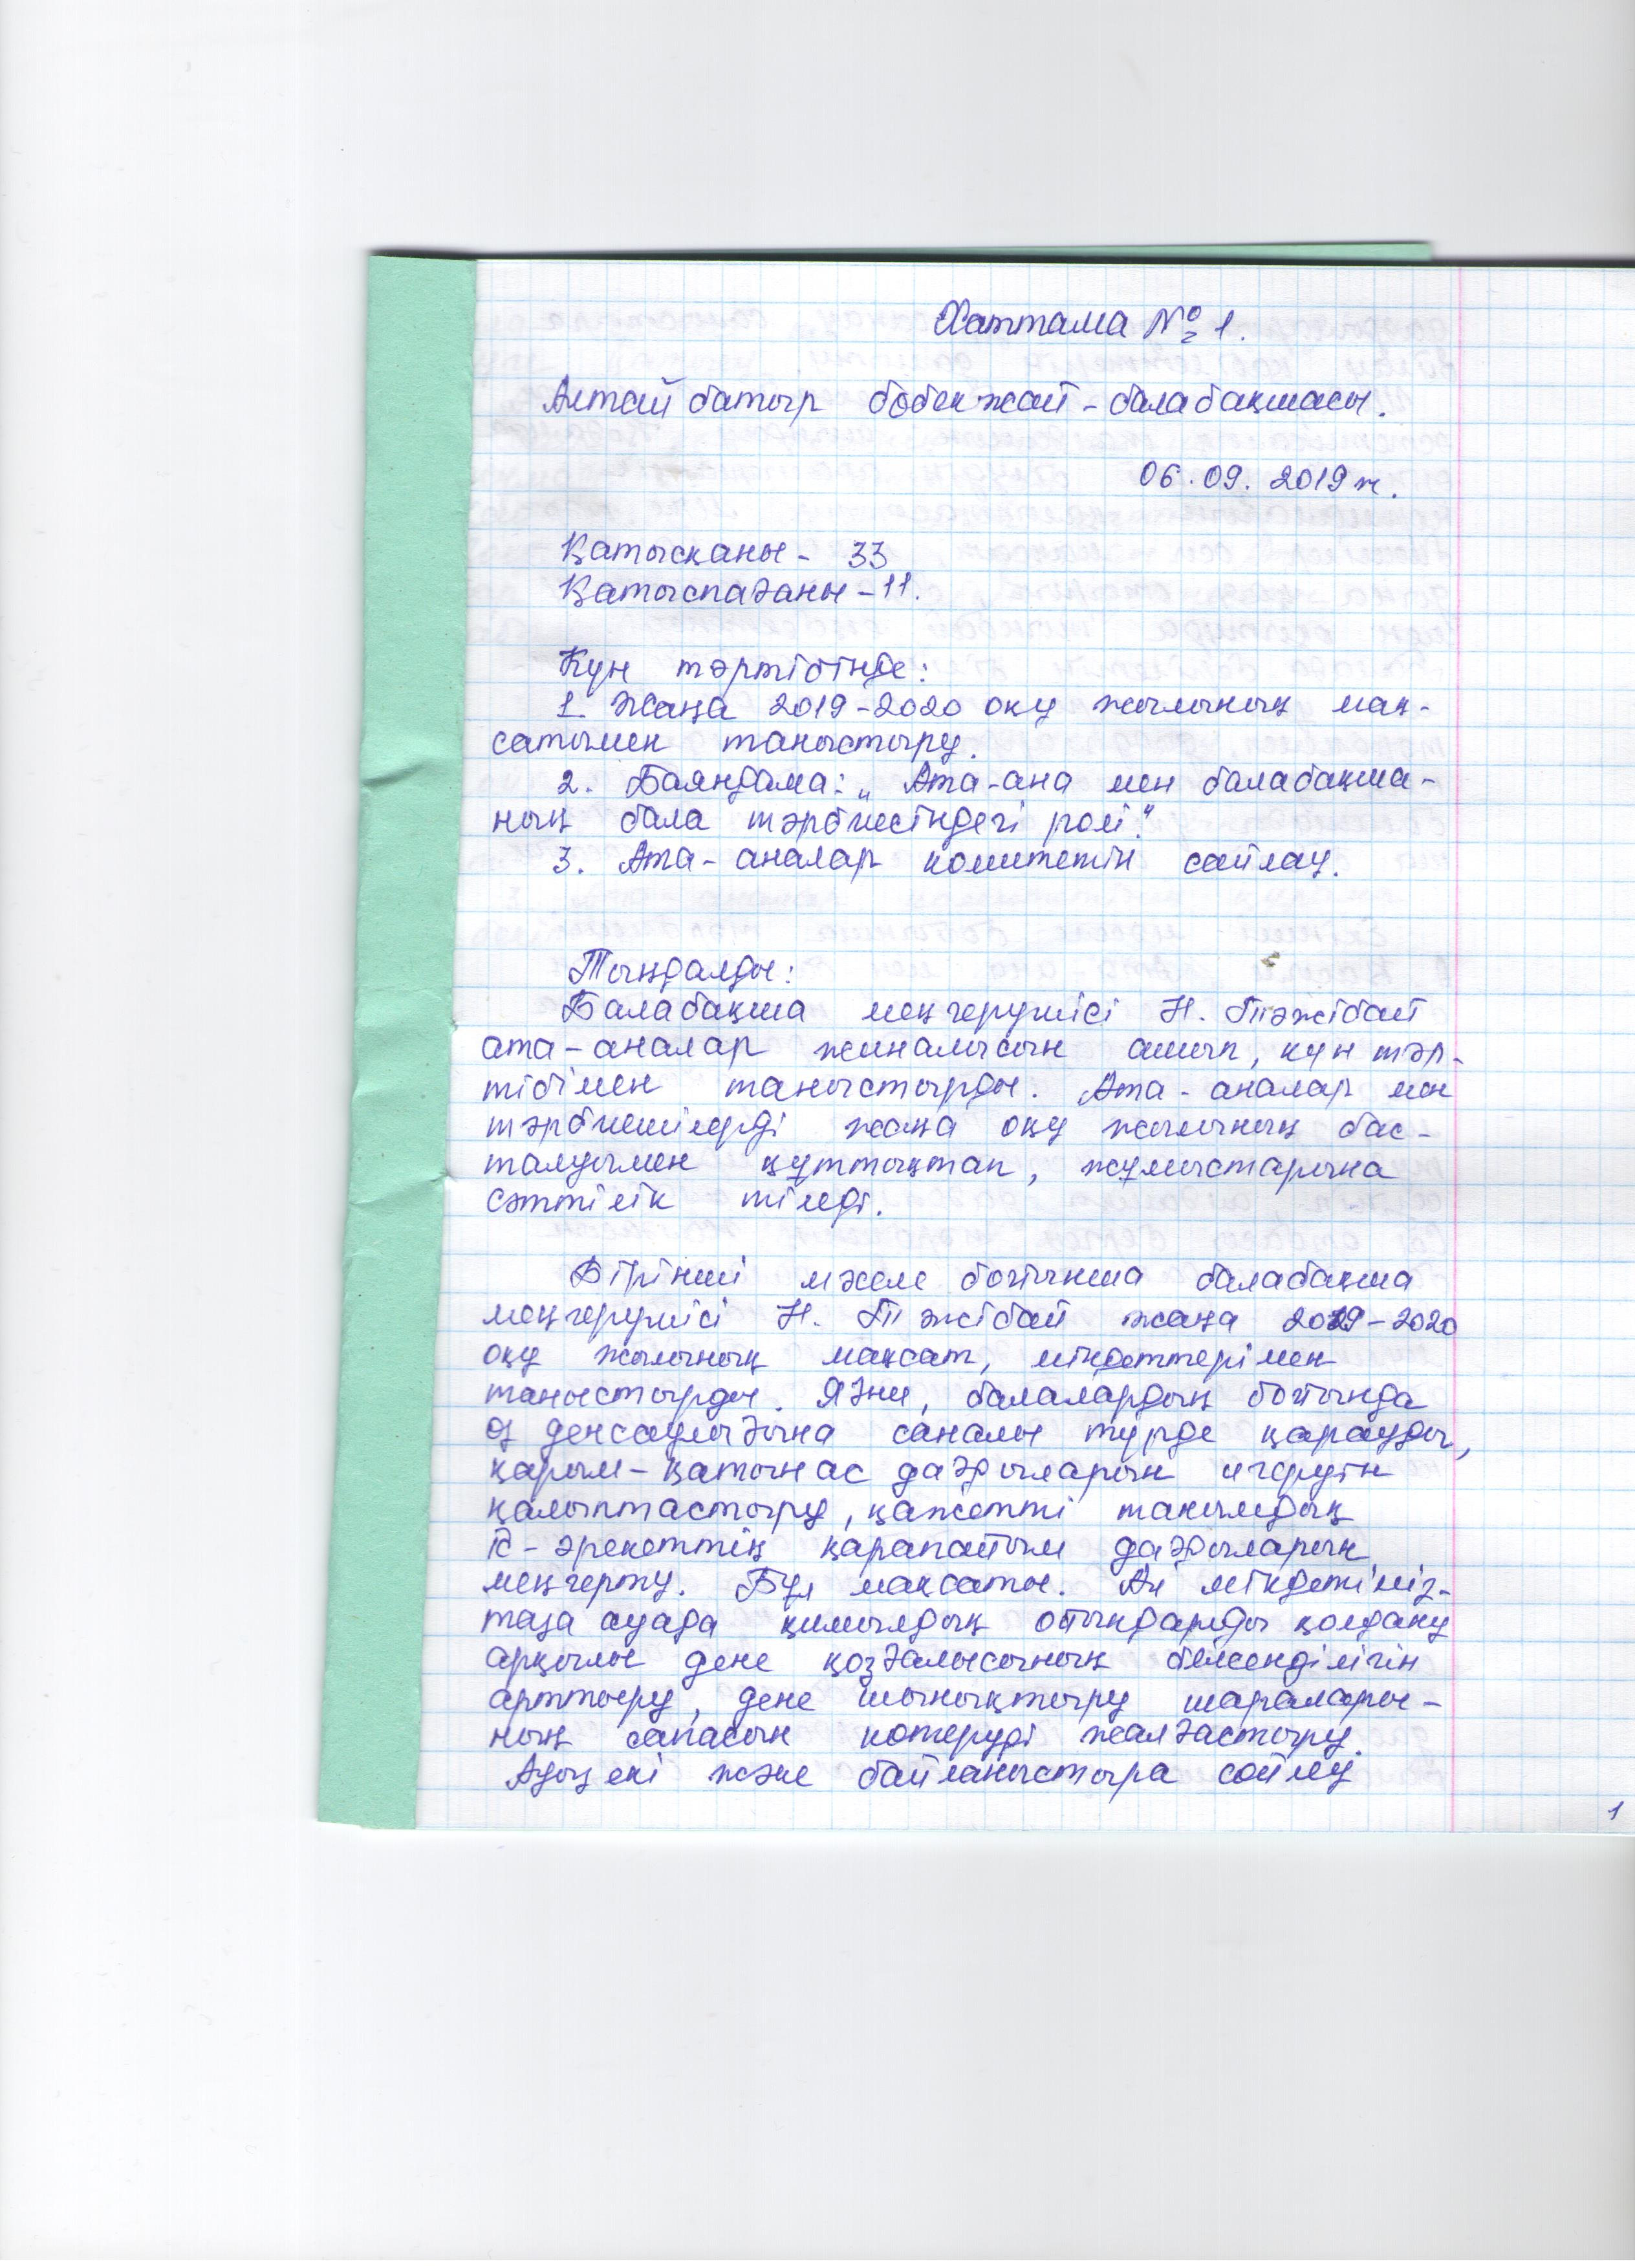 Хаттама № 1.
Алтай батыр бөбекжай - балабақшасы.
06.09.2019 ж.
Қатысқаны - 33
Қатыспағаны - 11.
Күн тәртібінде:
1. Жаңа 2019-2020 оқу жылының мақ-
сатымен таныстыру.
2. Баяндама: „ Ата-ана мен балабақша-
ның бала тәрбиесіндегі ролі."
3. Ата-аналар комитетін сайлау.
Тыңдалды:
Балабақша меңгерушісі Н. Тәжібай
ата-аналар жиналысын ашып, күн тәр-
тібімен таныстырды. Ата-аналар мен
тәрбиешілерді жаңа оқу жылының бас-
талуымен құттықтап, жұмыстарына
сәттілік тіледі.
Бірінші мәселе бойынша балабақша
меңгерушісі Н. Тәжібай жаңа 2019-2020
оқу жылының мақсат, міндеттерімен
таныстырды. Яғни, балалардың бойында
өз денсаулығына саналы түрде қарауды,
қарым-қатынас дағдыларын игеруін
қалыптастыру, қажетті танымдық
іс-әрекеттің қарапайым дағдыларын
меңгерту. Бұл мақсаты. Ал міндетіміз-
таза ауада қимылдық ойындарды қолдану
арқылы дене қозғалысының белсенділігін
арттыру, дене шынықтыру шаралары-
ның сапасын көтеруді жалғастыру.
Ауызекі және байланыстыра сөйлеу
1